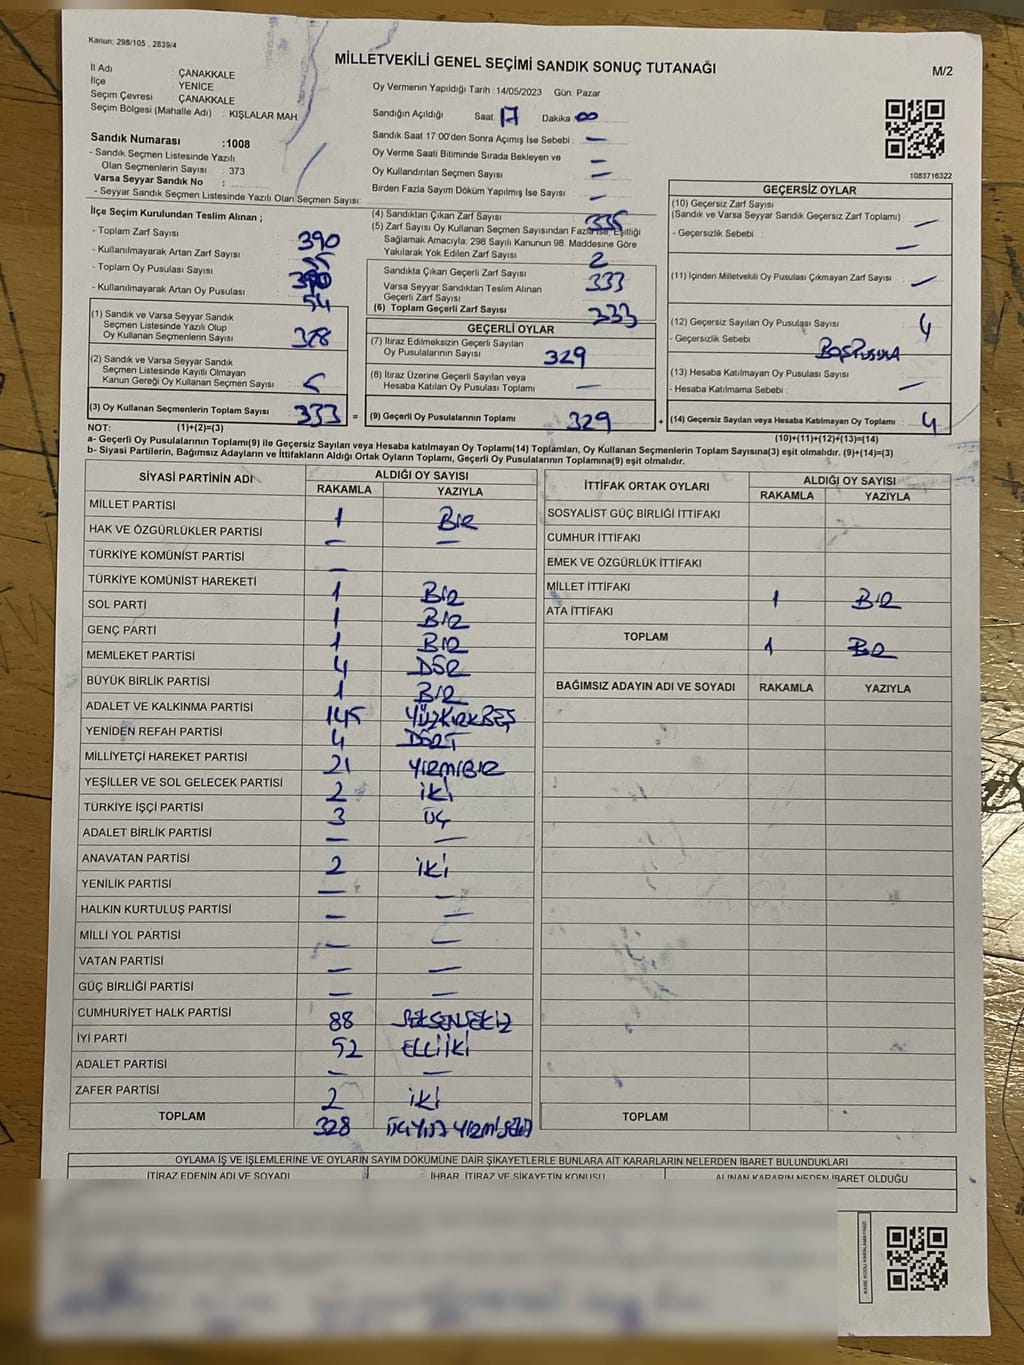 Kanun: 298/105 , 2839/4
MİLLETVEKİLİ GENEL SEÇİMİ SANDIK SONUÇ TUTANAĞI
M/2
İl Adı : ÇANAKKALE
İlçe : YENİCE
Seçim Çevresi : ÇANAKKALE
Seçim Bölgesi (Mahalle Adı) : KIŞLALAR MAH
Sandık Numarası :1008
- Sandık Seçmen Listesinde Yazılı
Olan Seçmenlerin Sayısı : 373
Varsa Seyyar Sandık No :
- Seyyar Sandık Seçmen Listesinde Yazılı Olan Seçmen Sayısı:
Oy Vermenin Yapıldığı Tarih :14/05/2023 Gün: Pazar
Sandığın Açıldığı Saat 17 Dakika 00
Sandık Saat 17:00'den Sonra Açımış İse Sebebi : —
Oy Verme Saati Bitiminde Sırada Bekleyen ve —
Oy Kullandırılan Seçmen Sayısı : —
Birden Fazla Sayım Döküm Yapılmış İse Sayısı : —
1083716322
İlçe Seçim Kurulundan Teslim Alınan ;
- Toplam Zarf Sayısı : 390
- Kullanılmayarak Artan Zarf Sayısı : 55
- Toplam Oy Pusulası Sayısı : 390
- Kullanılmayarak Artan Oy Pusulası : 54
(1) Sandık ve Varsa Seyyar Sandık
Seçmen Listesinde Yazılı Olup
Oy Kullanan Seçmenlerin Sayısı : 328
(2) Sandık ve Varsa Seyyar Sandık
Seçmen Listesinde Kayıtlı Olmayan
Kanun Gereği Oy Kullanan Seçmen Sayısı : 5
(3) Oy Kullanan Seçmenlerin Toplam Sayısı : 333 =
(4) Sandıktan Çıkan Zarf Sayısı : 335
(5) Zarf Sayısı Oy Kullanan Seçmen Sayısından Fazla ise, Eşitliği
Sağlamak Amacıyla: 298 Sayılı Kanunun 98. Maddesine Göre
Yakılarak Yok Edilen Zarf Sayısı : 2
Sandıkta Çıkan Geçerli Zarf Sayısı : 333
Varsa Seyyar Sandıktan Teslim Alınan
Geçerli Zarf Sayısı :
(6) Toplam Geçerli Zarf Sayısı : 333
GEÇERLİ OYLAR
(7) İtiraz Edilmeksizin Geçerli Sayılan
Oy Pusulalarının Sayısı : 329
(8) İtiraz Üzerine Geçerli Sayılan veya
Hesaba Katılan Oy Pusulası Toplamı : —
(9) Geçerli Oy Pusulalarının Toplamı : 329 +
GEÇERSİZ OYLAR
(10) Geçersiz Zarf Sayısı
(Sandık ve Varsa Seyyar Sandık Geçersiz Zarf Toplamı) : —
- Geçersizlik Sebebi : —
(11) İçinden Milletvekili Oy Pusulası Çıkmayan Zarf Sayısı : —
(12) Geçersiz Sayılan Oy Pusulası Sayısı : 4
- Geçersizlik Sebebi : BOŞ PUSULA
(13) Hesaba Katılmayan Oy Pusulası Sayısı :
- Hesaba Katılmama Sebebi : —
(14) Geçersiz Sayılan veya Hesaba Katılmayan Oy Toplamı : 4
NOT: (1)+(2)=(3)
(10)+(11)+(12)+(13)=(14)
a- Geçerli Oy Pusulalarının Toplamı(9) ile Geçersiz Sayılan veya Hesaba katılmayan Oy Toplamı(14) Toplamları, Oy Kullanan Seçmenlerin Toplam Sayısına(3) eşit olmalıdır. (9)+(14)=(3)
b- Siyasi Partilerin, Bağımsız Adayların ve İttifakların Aldığı Oyların Toplamı, Geçerli Oy Pusulalarının Toplamına(9) eşit olmalıdır.
SİYASİ PARTİNİN ADI ALDIĞI OY SAYISI
RAKAMLA YAZIYLA
MİLLET PARTİSİ 1 BİR
HAK VE ÖZGÜRLÜKLER PARTİSİ — —
TÜRKİYE KOMÜNİST PARTİSİ —
TÜRKİYE KOMÜNİST HAREKETİ 1 BİR
SOL PARTİ 1 BİR
GENÇ PARTİ 1 BİR
MEMLEKET PARTİSİ 4 DÖR
BÜYÜK BİRLİK PARTİSİ 1 BİR
ADALET VE KALKINMA PARTİSİ 145 YÜZKIRKBEŞ
YENİDEN REFAH PARTİSİ 4 DÖRT
MİLLİYETÇİ HAREKET PARTİSİ 21 YIRMIBIR
YEŞİLLER VE SOL GELECEK PARTİSİ 2 İKİ
TÜRKİYE İŞÇİ PARTİSİ 3 ÜÇ
ADALET BİRLİK PARTİSİ — —
ANAVATAN PARTİSİ 2 İKİ
YENİLİK PARTİSİ — —
HALKIN KURTULUŞ PARTİSİ — —
MİLLİ YOL PARTİSİ — —
VATAN PARTİSİ — —
GÜÇ BİRLİĞİ PARTİSİ — —
CUMHURİYET HALK PARTİSİ 88 SEKSENSEKİZ
İYİ PARTİ 52 ELLİİKİ
ADALET PARTİSİ — —
ZAFER PARTİSİ 2 İKİ
TOPLAM 328
İTTİFAK ORTAK OYLARI ALDIĞI OY SAYISI
RAKAMLA YAZIYLA
SOSYALİST GÜÇ BİRLİĞİ İTTİFAKI
CUMHUR İTTİFAKI
EMEK VE ÖZGÜRLÜK İTTİFAKI
MİLLET İTTİFAKI 1 BİR
ATA İTTİFAKI
TOPLAM 1 BİR
BAĞIMSIZ ADAYIN ADI VE SOYADI RAKAMLA YAZIYLA
TOPLAM
OYLAMA İŞ VE İŞLEMLERİNE VE OYLARIN SAYIM DÖKÜMÜNE DAİR ŞİKAYETLERLE BUNLARA AİT KARARLARIN NELERDEN İBARET BULUNDUKLARI
İTİRAZ EDENİN ADI VE SOYADI İHBAR, İTİRAZ VE ŞİKAYETİN KONUSU ALINAN KARARIN NEDEN İBARET OLDUĞU
KARE KODU KARALAMAYINIZ!